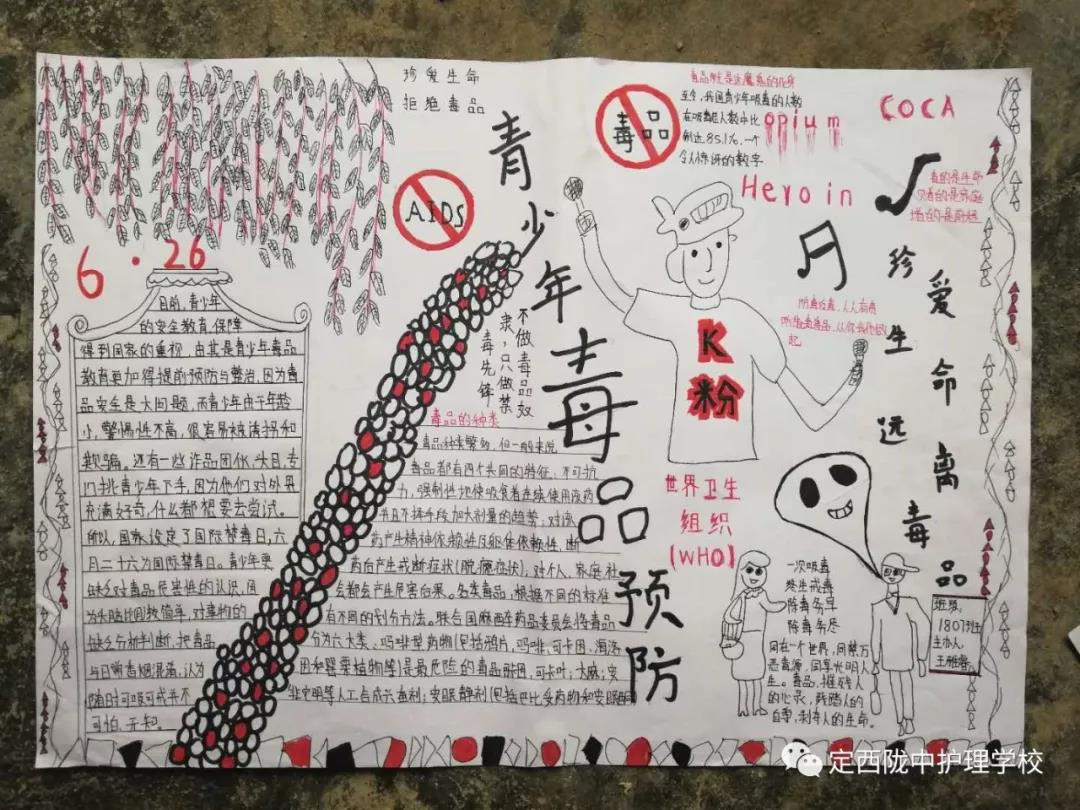 珍爱生命
拒绝毒品
AIDS
青少年毒品预防
6·26
目前,青少年
的安全教育,保障
得到国家的重视,由其是青少年毒品
教育更加得提前预防与整治,因为毒
品安全是大问题,而青少年由于年龄
小,警惕性不高,很容易被诱拐和
欺骗。还有一些诈品团伙、头目,专
门挑青少年下手,因为他们对外界
充满好奇,什么都想要去尝试。
所以,国家设定了国际禁毒日,六
月二十六为国际禁毒日。青少年更
缺乏对毒品危害性的认识,因
为头脑比较简单,对事物的
缺乏分析判断,把毒品
与日常香烟混淆,认为
随时可吸可戒并不
可怕,无知。
不做毒品奴
隶,只做禁
毒先锋
毒品的种类
毒品种类繁多,但一般来说
毒品都有四个共同的特征:不可抗
力,强制性地使吸食者连续使用该药
并且不择手段加大剂量的趋势;对该
药产生精神依赖性及躯体依赖性,断
药后产生戒断症状(脱瘾症状),对个人、家庭、社
会都会产生危害后果。各类毒品,根据不同的标准
有不同的划分方法。联合国麻醉药品委员会将毒品
分为六大类:吗啡型药物(包括鸦片,吗啡,可卡因,海洛
因和罂粟植物等)是最危险的毒品;可卡因,可卡叶;大麻;安
非他明等人工合成兴奋剂;安眠镇静剂(包括巴比妥药物和安眠酮)
毒品
毒品就是这魔鬼的化身
至今,我国青少年吸毒的人数
在吸毒总人数中比
例达85.1%,一个
令人惊讶的数字
opium
COCA
Heroin
毒的是生命
吸着的是家庭
K
粉
世界卫生
组织
(WHO)
珍爱生命远离毒品
一次吸毒
终生戒毒
同在一个世界,同禁万
恶毒源,同享光明人
生。毒品,摧残人
的心灵,残踏人的
自尊,剥夺人的生命。
班级:
1807班
主办人:
定西陇中护理学校